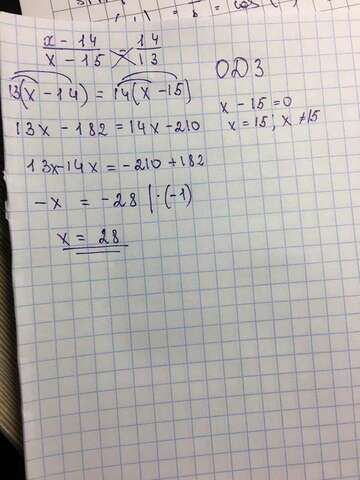 x - 14 / x - 15 = 14 / 13
ОДЗ
13(x - 14) = 14(x - 15)
x - 15 = 0
x = 15; x ≠ 15
13x - 182 = 14x - 210
13x - 14x = -210 + 182
-x = -28 | · (-1)
x = 28